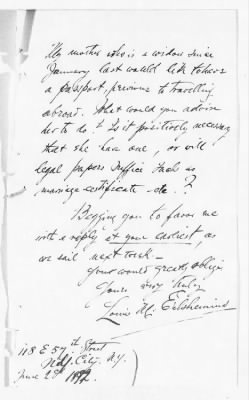 My mother who is a widow since
January last would like to have
a passport, previous to travelling
abroad. What would you advise
her to do? Is it positively necessary
that she have one, or will
legal papers suffice such as
marriage certificate - etc.?
Begging you to favor me
with a reply at your earliest, as
we sail next week -
Yours would greatly oblige
Yours very truly
Louis M. Eilshemius
118 E 57th Street
N.Y. City. N.Y.
June 28